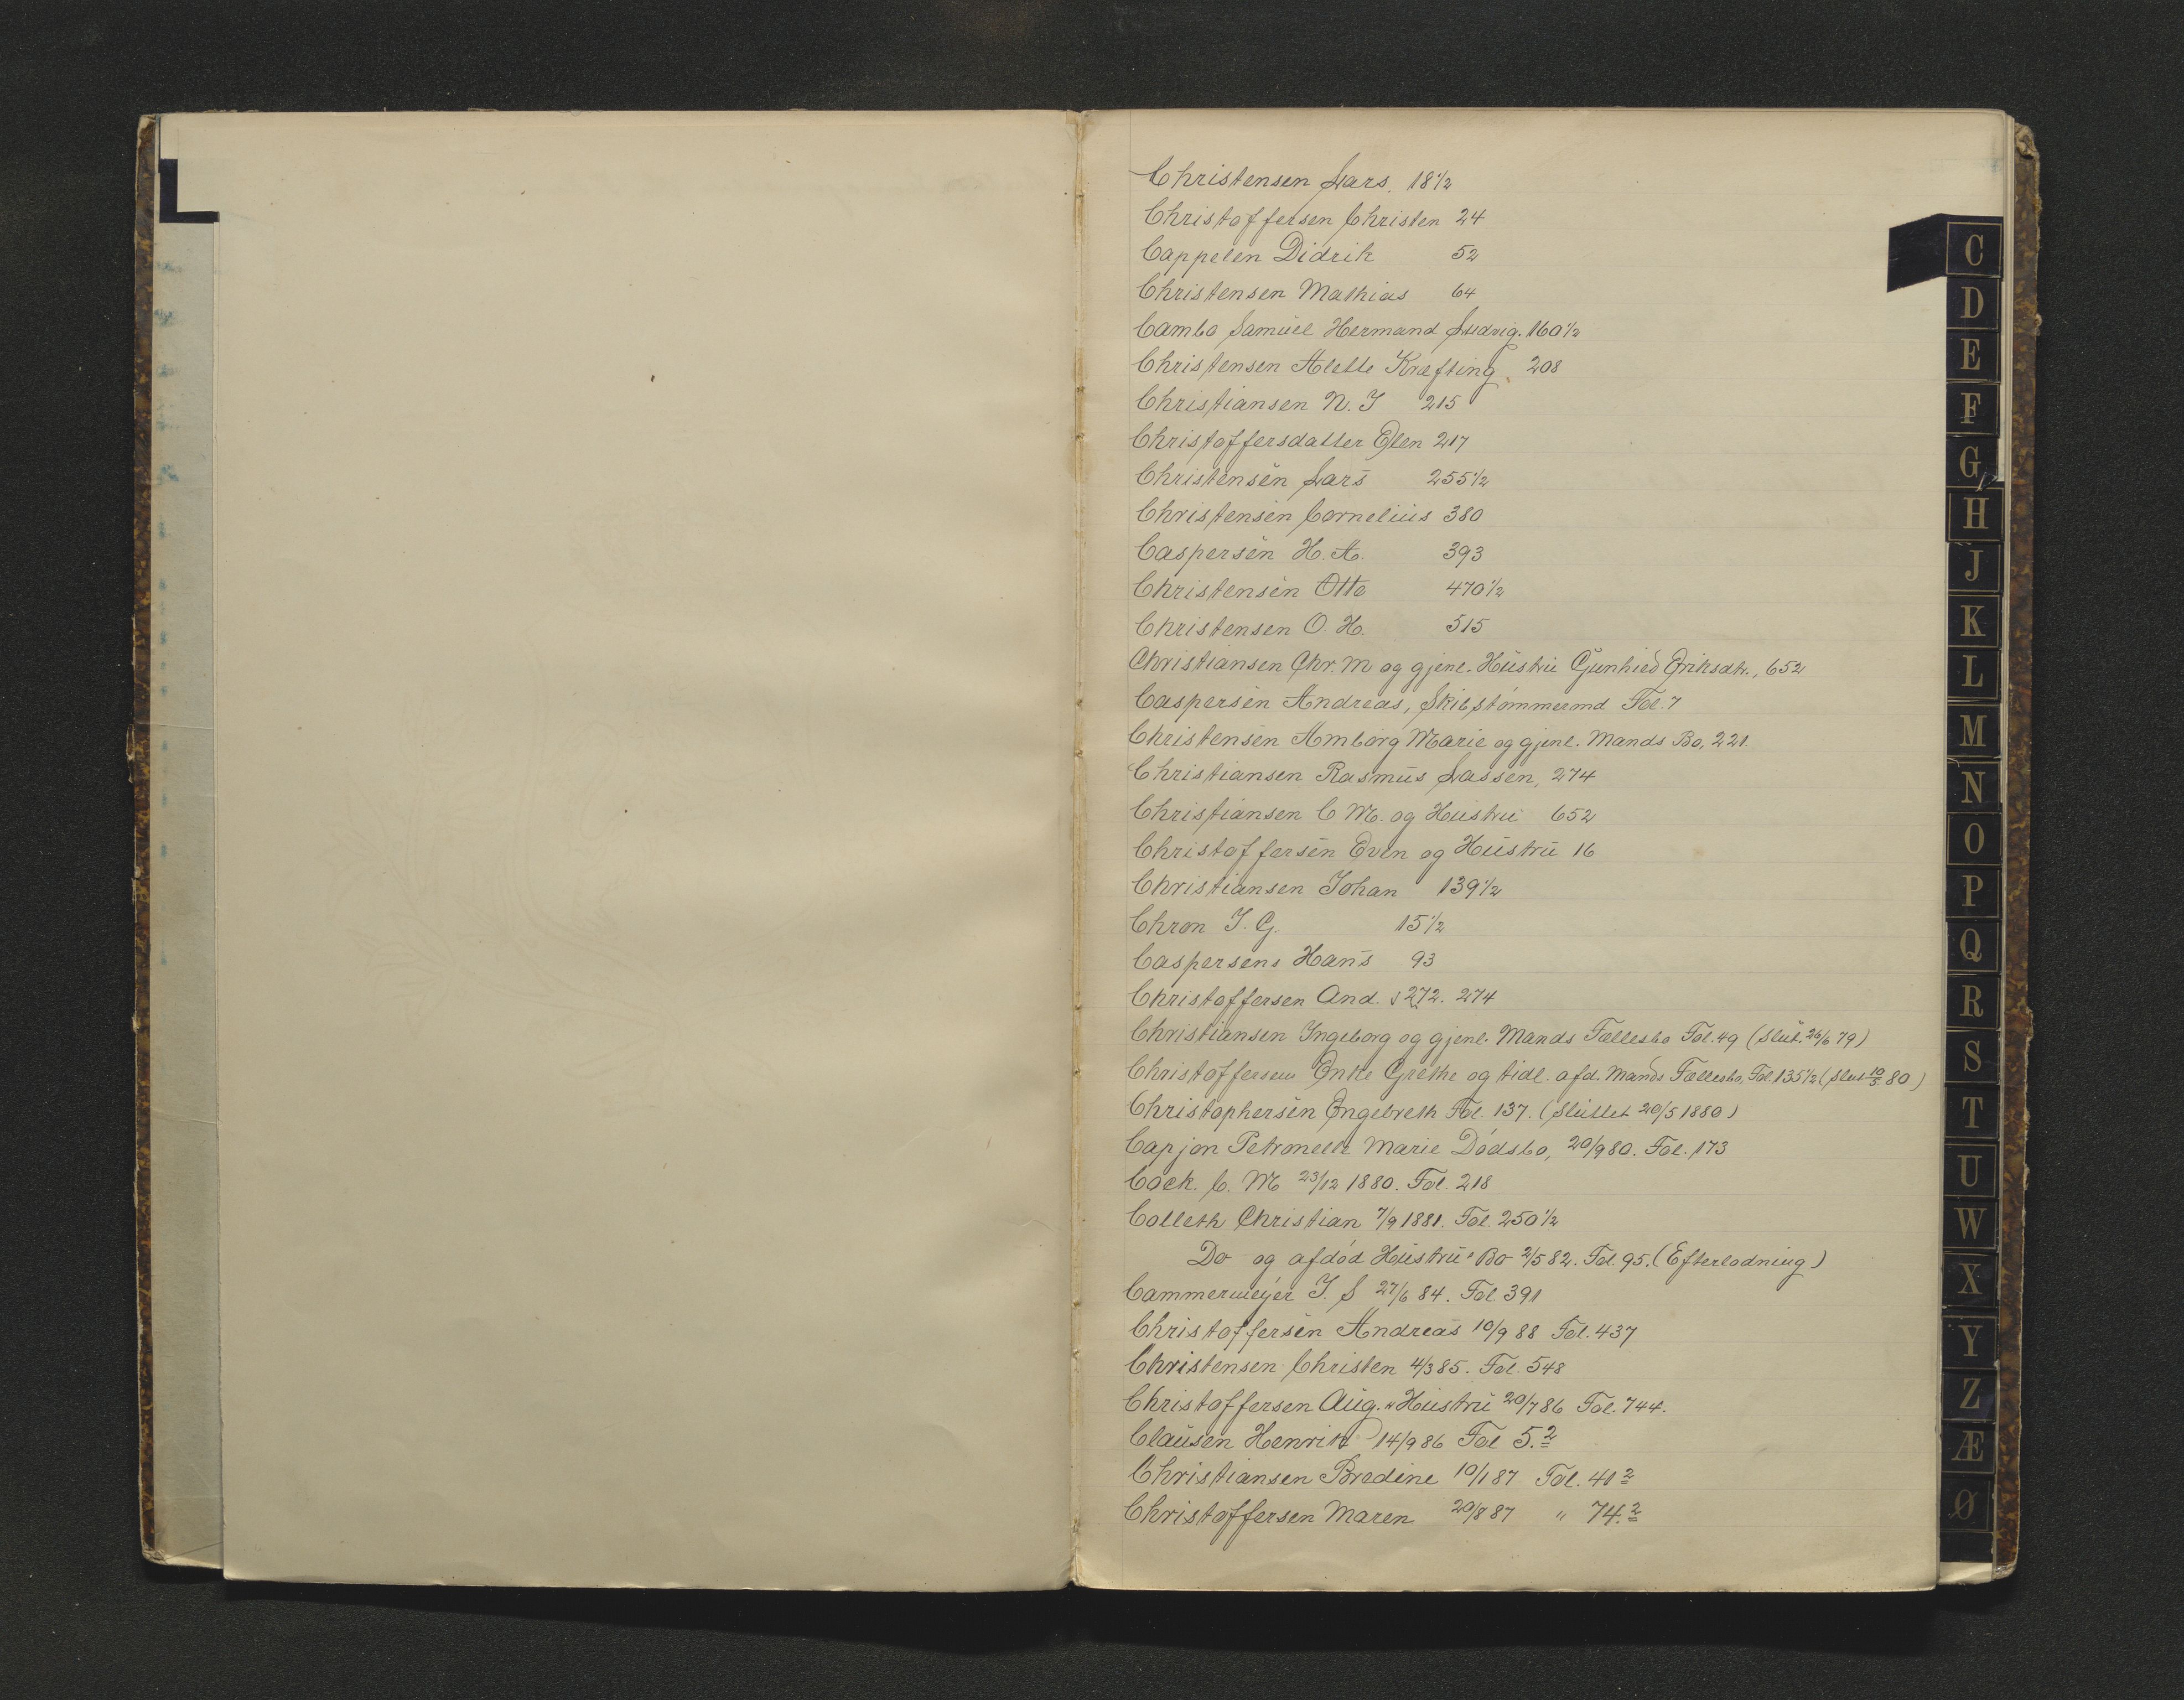 Christensen Lars. 18 1/2
Christoffersen Christen 24
Cappelen Didrik 52
Christensen Mathias 64
Cambo Samuel Hermand Ludvig. 160 1/2
Christensen Alette Kræfting 208
Christiansen N. J 215
Christoffersdatter Elen 217
Christensen Lars 255 1/2
Christensen Cornelius 380
Caspersen H. A. 393
Christensen Otto 470 1/2
Christensen O. H. 515
Christiansen Chr. M og gjenl. Hustru Gunhild Eriksdtr., 652
Caspersen Andreas, Skibstømmermd Fol. 7
Christensen Amborg Marie og gjenl. Mands Bo, 221.
Christiansen Rasmus Lassen, 274
Christiansen C M. og Hustru 652
Christoffersen Even og Hustru 16
Christiansen Johan 139 1/2
Chron J. G. 15 1/2
Caspersens Hans 93
Christoffersen And. 272. 274
Christiansen Ingeborg og gjenl. Mands Fællesbo Fol. 49 (Slut. 26/6 79)
Christoffersens Enke Grethe og tidl. afd. Mands Fællesbo, Fol. 135 1/2 (Slut 10/5 80)
Christophersen Engebreth Fol. 137. (Sluttet 20/5 1880)
Capjon Petronelle Marie Dødsbo, 20/9 80. Fol. 173
Cock. C. M 23/12 1880. Fol. 218
Colleth Christian 7/9 1881. Fol. 250 1/2
Do og afdød Hustru's Bo 2/5 82. Fol. 95. (Efterlodning)
Cammermeyer J. S 27/6 84. Fol. 391
Christoffersen Andreas 10/9 88 Fol. 437
Christensen Christen 4/3 85. Fol. 548
Christoffersen Aug. " Hustru 20/7 86 Fol. 744.
Clausen Henrik 14/9 86 Fol 5.2
Christiansen Bredine 10/1 87 Fol. 41 2
Christoffersen Maren 20/8 87 " 74.2
C
D
E
F
G
H
J
K
L
M
N
O
P
Q
R
S
T
U
W
X
Y
Z
Æ
Ø